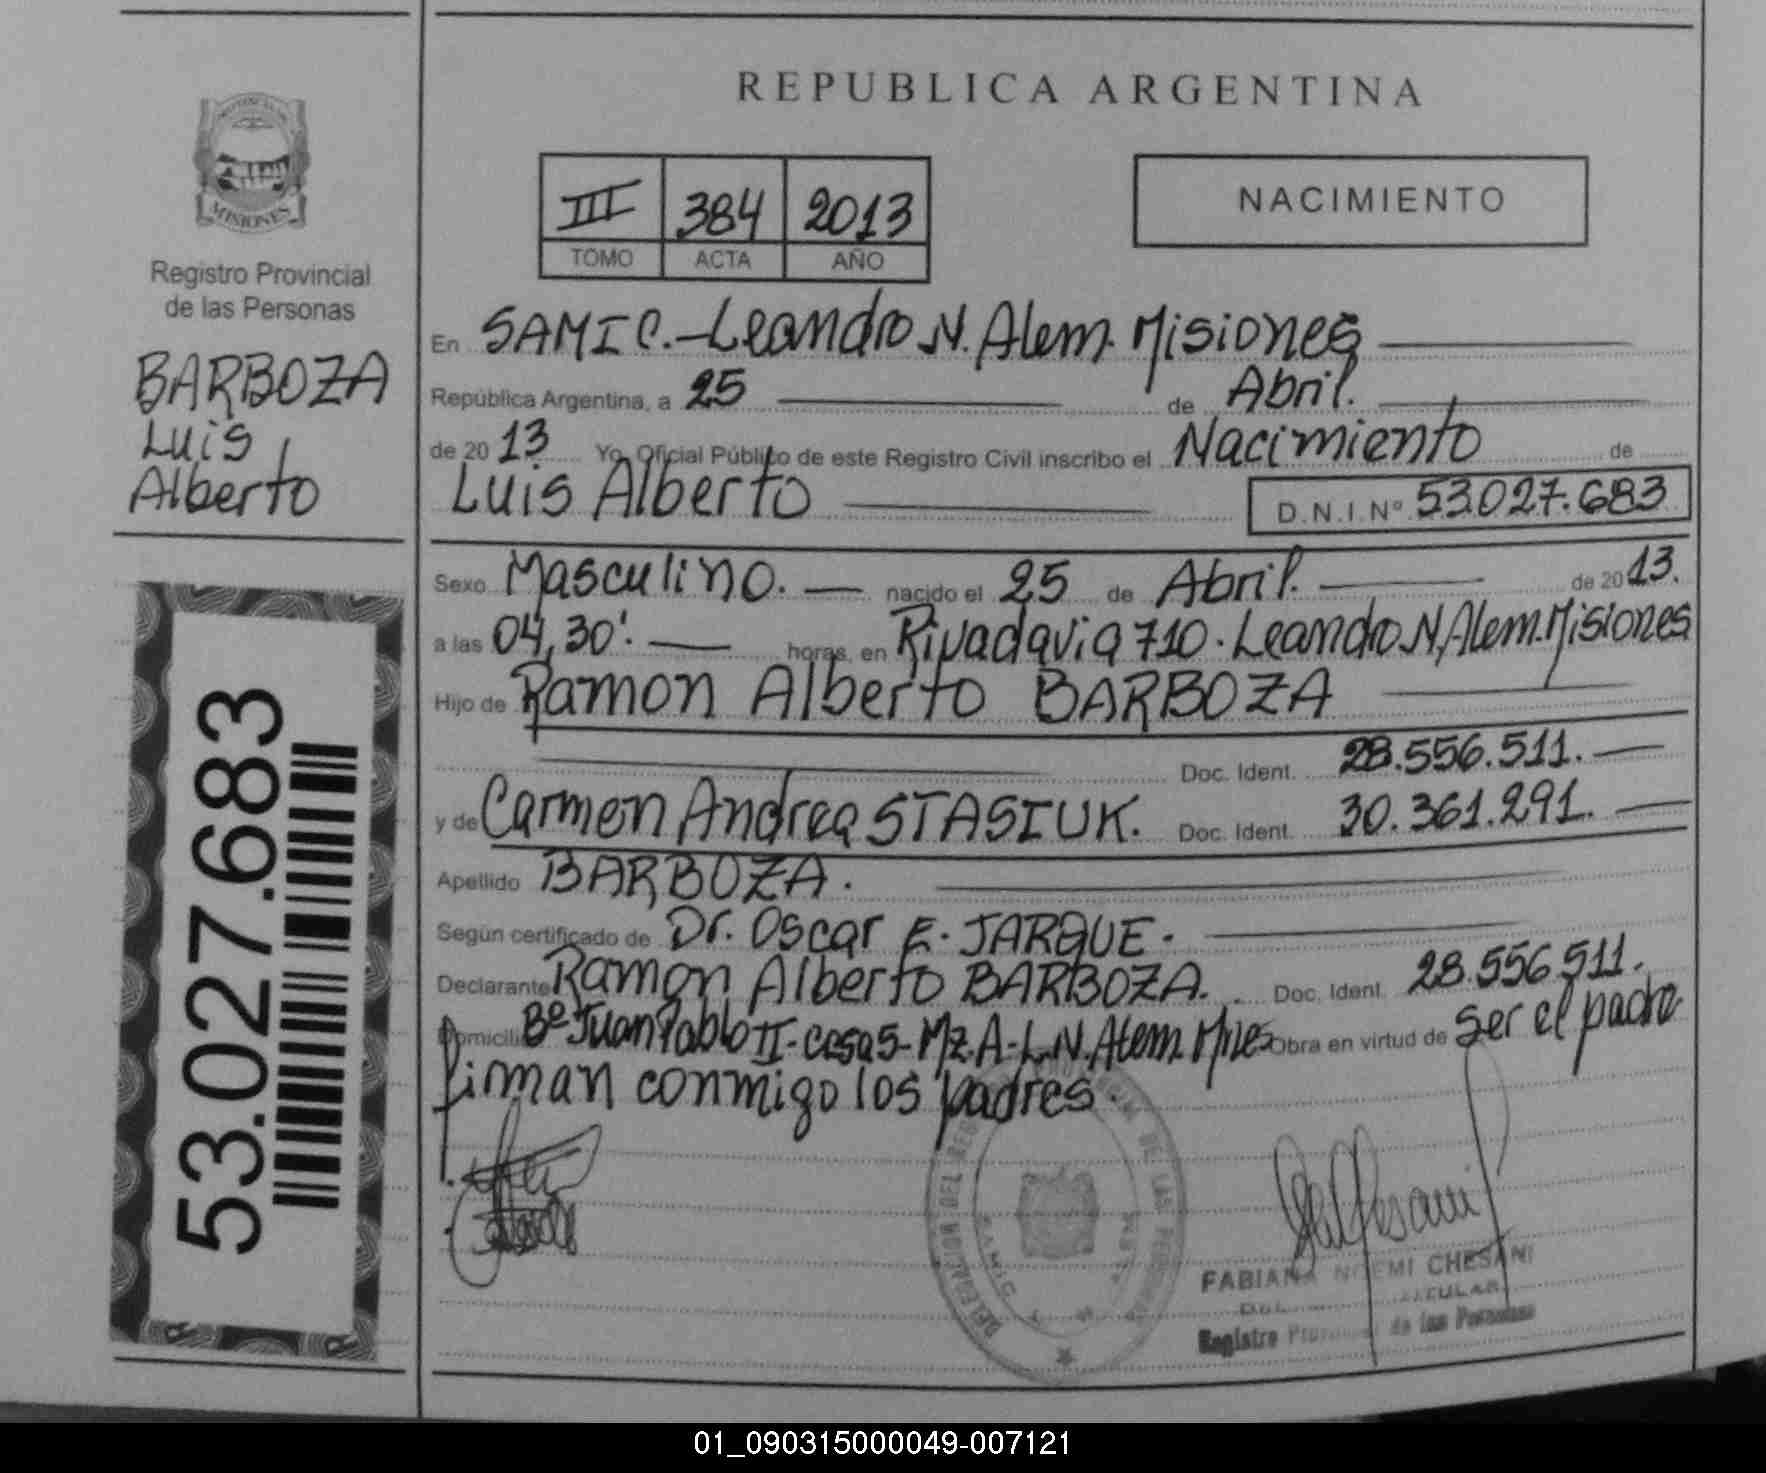 REPUBLICA ARGENTINA
PROVINCIA
MISIONES
Registro Provincial
de las Personas
BARBOZA
Luis
Alberto
53.027.683
III 384 2013
TOMO ACTA AÑO
NACIMIENTO
En SAMIC.-Leandro N. Alem. Misiones
República Argentina, a 25 de Abril.
de 2013 Yo Oficial Público de este Registro Civil inscribo el Nacimiento de
Luis Alberto D.N.I.Nº 53.027.683
Sexo Masculino. nacido el 25 de Abril. de 2013.
a las 04,30'. horas, en Rivadavia 710. Leandro N. Alem. Misiones
Hijo de Ramon Alberto BARBOZA
Doc. Ident. 28.556.511.
y de Carmen Andrea STASIUK. Doc. Ident. 30.361.291.
Apellido BARBOZA.
Según certificado de Dr. Oscar E. JARQUE.
Declarante Ramon Alberto BARBOZA. Doc. Ident. 28.556.511.
Domicilio Bº Juan Pablo II - casa 5 - Mz. A - L.N. Alem. Mnes Obra en virtud de ser el padre
firman conmigo los padres.
DELEGACION DEL REGISTRO PROVINCIAL DE LAS PERSONAS
SAMIC
FABIANA NOEMI CHESANI
TITULAR
Registro Provincial de las Personas
01_090315000049-007121